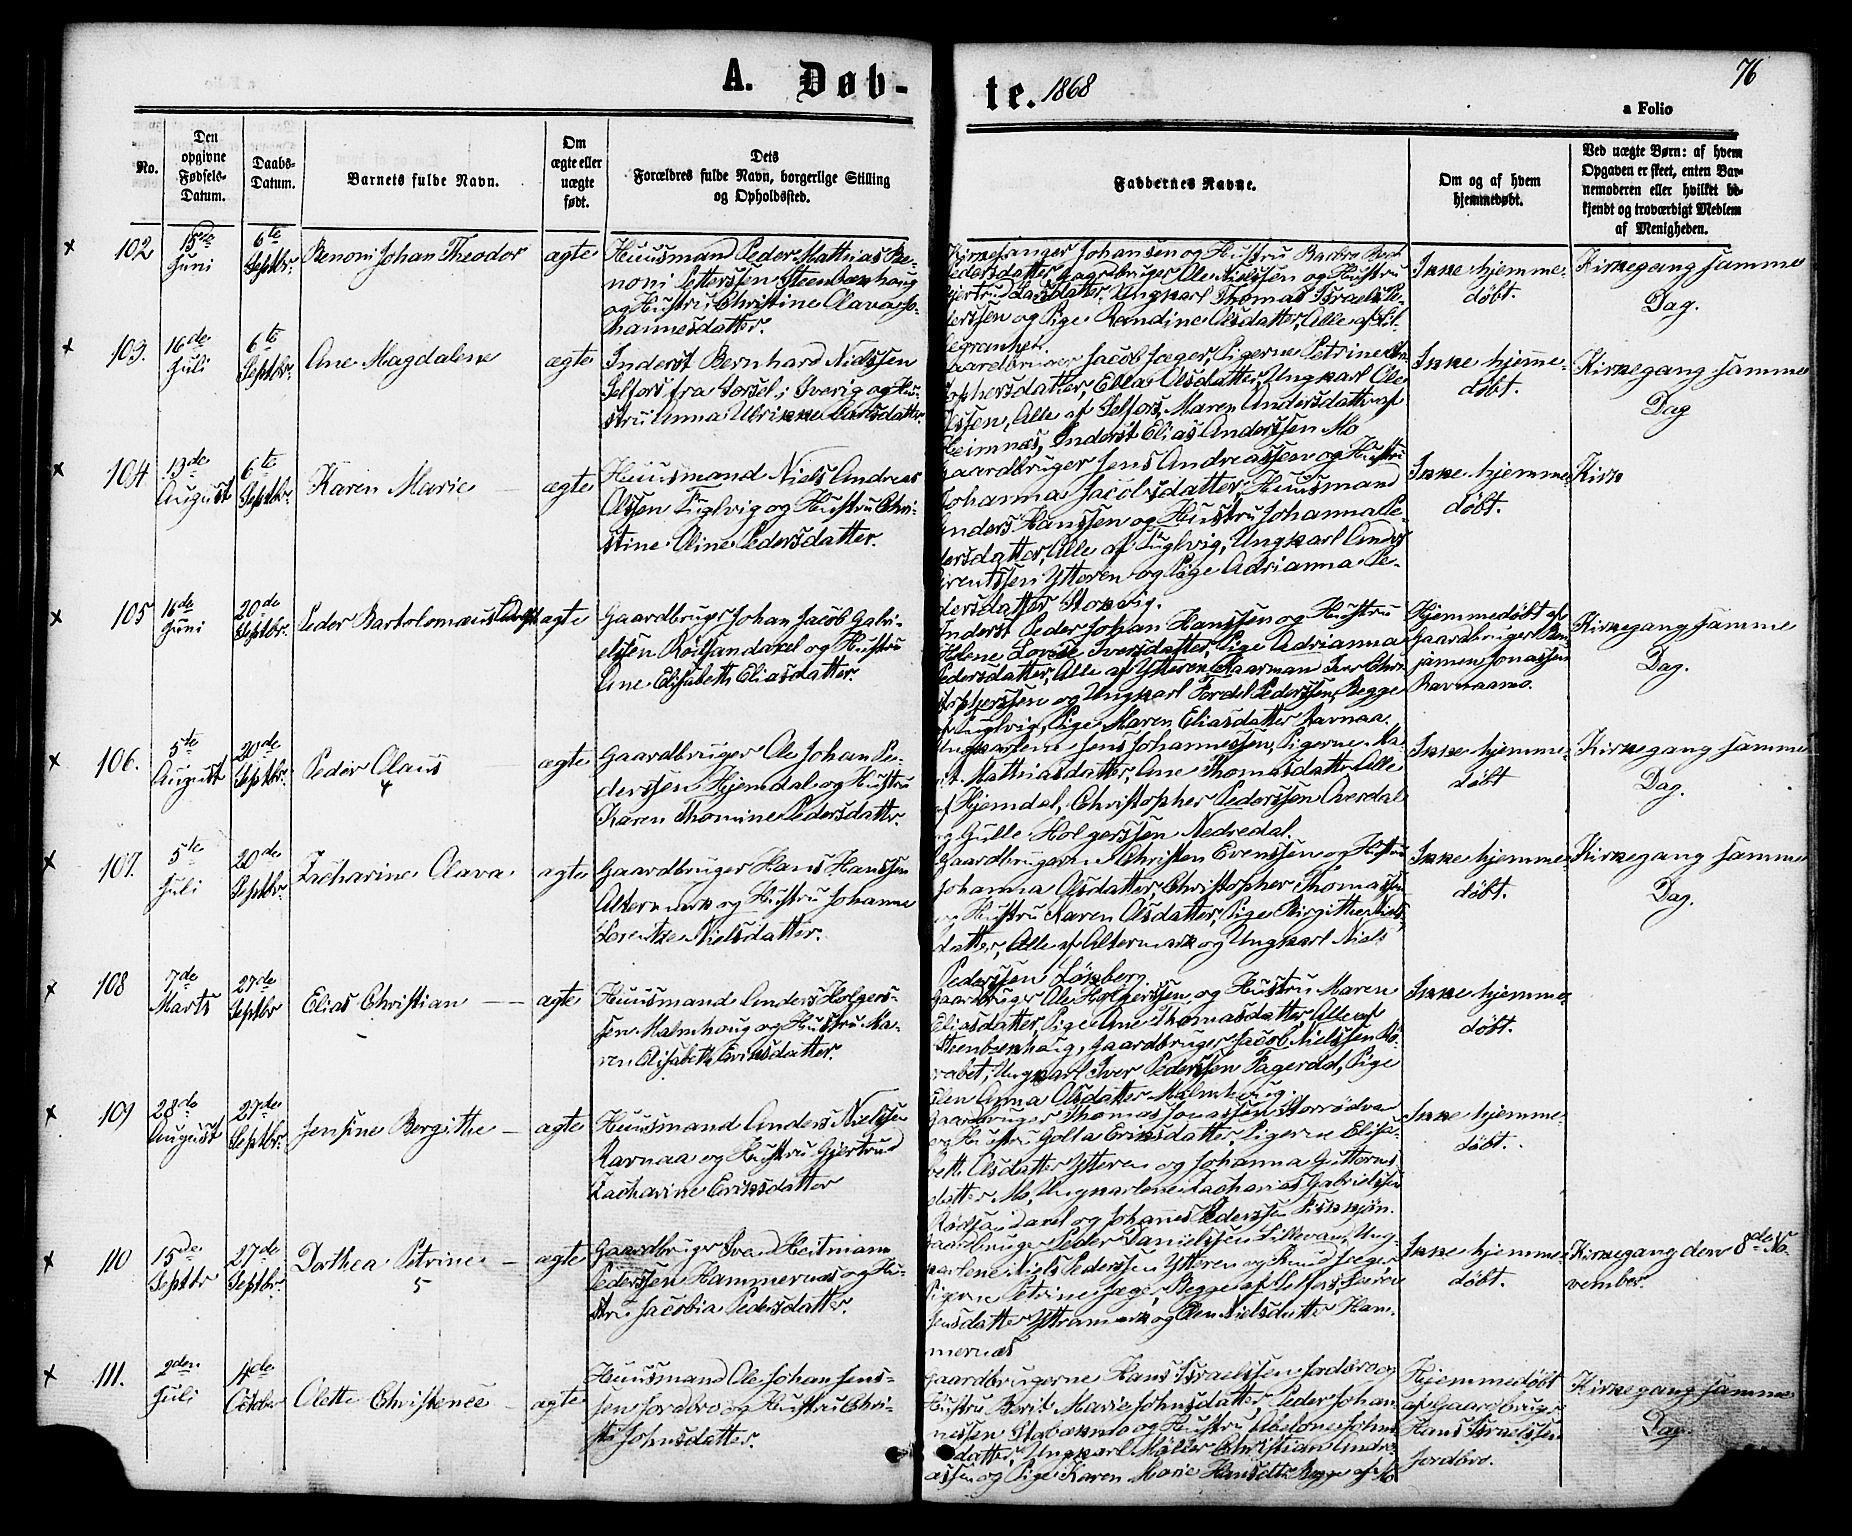 A. Døb-
te. 1868
76
a Folio
No.
Den
opgivne
Fødsels-
Datum.
Daabs-
Datum.
Barnets fulde Navn.
Om
ægte eller
uægte
født.
Dets
Forældres fulde Navn, borgerlige Stilling
og Opholdssted.
Faddernes Navne.
Om og af hvem
hjemmedøbt.
Ved uægte Børn: af hvem
Opgaven er skeet, enten Bar-
nemoderen eller hvilket be-
kjendt og troværdigt Medlem
af Menigheden.
102
15de
Juni
6te
Septbr.
Benoni Johan Theodor
ægte
Huusmand Peder Mathias Be-
noni Pettersen Steenbækhaug
og Hustru Christine Olava Jo-
hannesdatter.
Kirkesanger Johansen og Hustru Barbro
Pedersdatter, Gaardbruger Ole Nielssen og Hustru
Gjertrud Larsdatter, Ungkarl Thomas Israels Pe-
derssen og Pige Randine Olsdatter, Alle af
Ikke hjemme-
døbt.
Kirkegang samme
Dag.
103.
16de
Juli
6te
Septbr.
Ane Magdalene
ægte
Inderst Bernhard Nielssen
Selfors fra Sorsel i Sverig og Hu-
stru Anna Ulrikke Carlsdatter
Gaardbruger Jacob Jæger, Pigerne Petrine
Ebba Olsdatter, Ungkarl Ole
Olssen, Alle af Selfors, Maren Andersdatter af
Heimnæs, Inderst Elias Anderssen Mo
Ikke hjemme-
døbt.
Kirkegang samme
Dag
104
13de
August
6te
Septbr.
Karen Marie
ægte
Huusmand Niels Andreas
Olssen Fuglvig og Hustru Chri-
stine Oline Pedersdatter.
Gaardbruger Jens Andreassen og Hustru
Johanna Jacobsdatter, Huusmand
Anders Hanssen og Hustru Johanna Pe-
dersdatter, Alle af Fuglvig, Ungkarl Anders
Berentssen Ytteren og Pige Adrianna Pe-
dersdatter Storvig.
Ikke hjemme-
døbt.
Kirk
105
16de
Juni
20de
Septbr.
Peder Bartolomæus Adolf
ægte
Gaardbruger Johan Jacob Gabri-
elssen Rødsandaxel og Hustru
Line Elisabeth Eliasdatter.
Inderst Peder Johan Hanssen og Hustru
Helene Lovise Iversdatter, Pige Adrianna
Pedersdatter, Alle af Ytteren, Kaarmand Iver Chri-
stopherssen og Ungkarl Fordel Pederssen, Begge
af Fuglvig, Pige Maren Eliasdatter Ravnaa.
Hjemmedøbt af
Gaardbruger Ben-
jamen Jonassen
Ravnaamo.
Kirkegang samme
Dag.
106.
5te
August
20de
Septbr.
Peder Olaus
4
ægte
Gaardbruger Ole Johan Pe-
derssen Hjemdal og Hustru
Karen Thomine Pedersdatter.
Ungkarlene Jens Johannessen, Pigerne Ma-
rit Mathiasdatter, Ane Thomasdatter Alle
af Hjemdal, Christopher Pederssen Overdal
og Gulle Holgerssen Nedredal.
Ikke hjemme-
døbt
Kirkegang samme
Dag.
107.
5te
Juli
20de
Septbr.
Zacharine Olava
ægte
Gaardbruger Hans Hanssen
Altermark og Hustru Johanne
Lorentze Nielsdatter.
Gaardbrugerne Christen Evenssen og Hustru
Johanna Olsdatter, Christopher Thomassen
og Hustru Karen Olsdatter, Pige Birgithe Niels-
datter, Alle af Altermark og Ungkarl Niels
Pederssen Løkberg.
Ikke hjemme-
døbt.
Kirkegang samme
Dag.
108
7de
Marts
27de
Septbr
Elias Christian
ægte
Huusmand Anders Holgers-
sen Malmhoug og Hustru Ma-
ren Elisabeth Eriksdatter.
Gaardbruger Ole Holgerssen og Hustru Maren
Eliasdatter, Pige Ane Thomasdatter Alle af
Steenbækhaug, Gaardbruger Jacob Nielssen
Ungkarl Iver Pederssen Fagerdal, Pige
Ellen Anna Olsdatter Malmhoug.
Ikke hjemme-
døbt.
109
28de
August
27de
Septbr.
Jensine Bergithe
ægte
Huusmand Anders Nielssen
Ravnaa og Hustru Gjertrud
Zacharine Eriksdatter
Gaardbruger Thomas Jonassen Storrødva
og Hustru Golla Eriksdatter, Pigerne Elisa-
beth Olsdatter Ytteren og Johanna Guttorms-
datter Mo, Ungkarlene Zacharias Gabrielssen
Rødsandaxel og Johannes Pederssen
Ikke hjemme-
døbt.
110
15de
Septbr
27de
Septbr.
Dorthea Petrine
5
ægte
Gaardbruger Svend Heitmann
Pederssen Hammernæs og Hu-
stru Jacobia Pedersdatter.
Gaardbruger Peder Danielssen Lillevand, Ung-
karlene Niels Pederssen Ytteren og Knud Jæger,
Pigerne Petrine Jæger, Begge af Selfors,
Jensdatter Ytteren og Elen Nielsdatter Ham-
mernæs
Ikke hjemme-
døbt.
Kirkegang den 8de No-
vember.
111.
2den
Juli
4de
October
Olette Christence
ægte
Huusmand Ole Johan Jens-
sen Jordbro og Hustru Chri-
sti Johnsdatter.
Gaardbrugerne Hans Israelssen Jordbro og
Hustru Berit Marie Johnsdatter, Peder Johan-
nessen Stabækmo og Hustru Abelone Johns-
datter, Ungkarl Møller Christian Andre-
assen og Pige Karen Marie Hansdtr. Begge af
Hjemmedøbt
af Gaardbruger
Hans Israelssen
Jordbro.
Kirkegang samme
Dag.